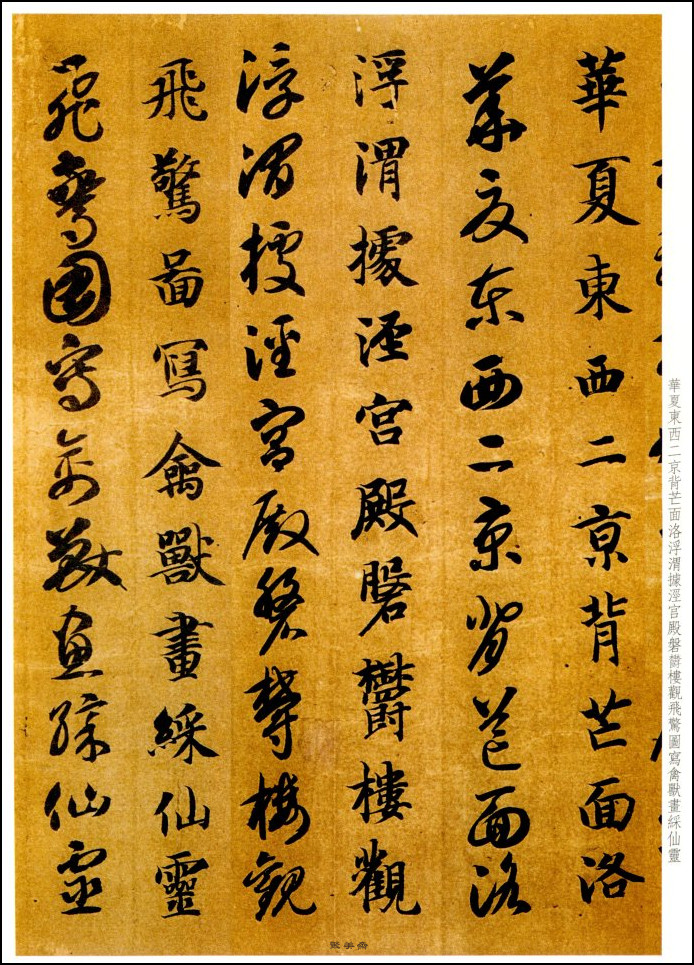 華夏東西二京背芒面洛浮渭據涇宮殿磐欝樓觀飛驚圖寫禽獸畫綵仙靈
華夏東西二京背芒面洛
華夏东西二京背芒面洛
浮渭據涇宮殿磐欝樓觀
浮渭據涇宮殿磐欝樓觀
飛驚啚寫禽獸畫綵仙靈
飛驚圖寫禽獸畫綵仙靈